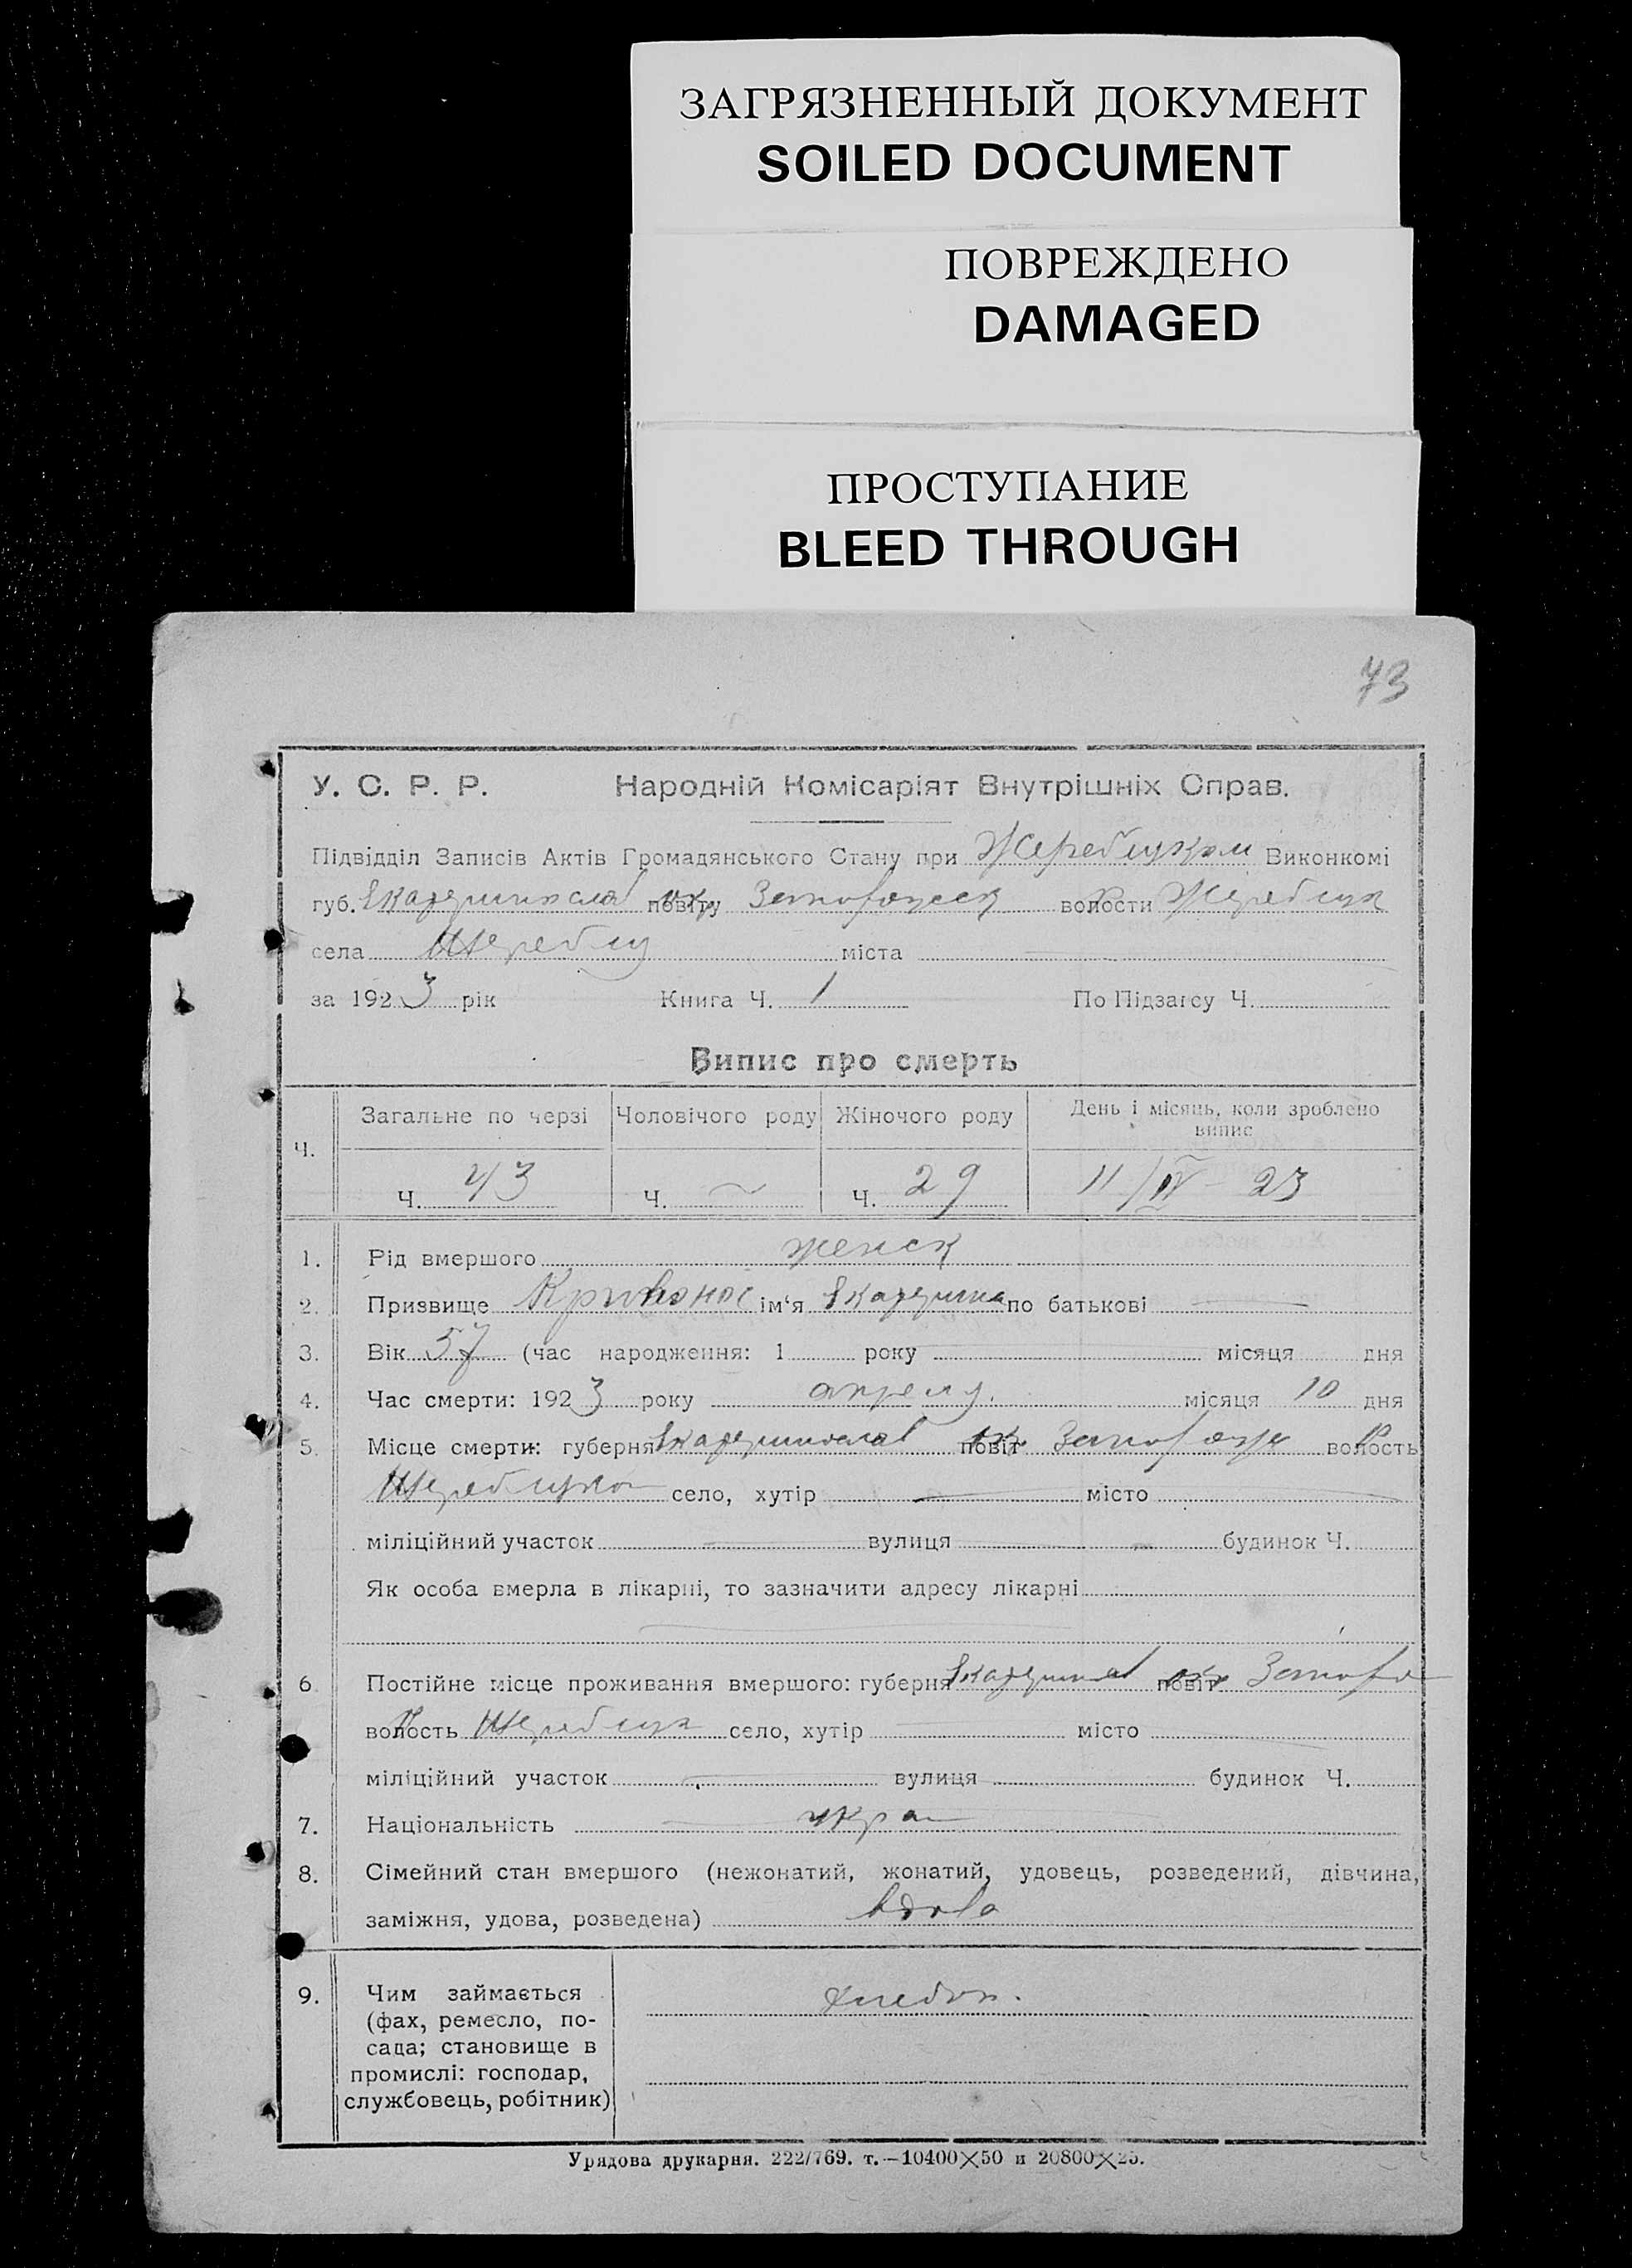 ЗАГРЯЗНЕННЫЙ ДОКУМЕНТ
SOILED DOCUMENT
ПОВРЕЖДЕНО
DAMAGED
ПРОСТУПАНИЕ
BLEED THROUGH
73
У. С. Р. Р. Народній Комісаріят Внутрішніх Справ.
Підвідділ Записів Актів Громадянського Стану при Жеребцуком Виконкомі
губ. Екатеринослав повіту окр Запорожск волости р Жеребцук
села Жеребцу міста
за 1923 рік Книга Ч. 1 По Підзагсу Ч.
Випис про смерть
Ч. Загальне по черзі Чоловічого роду Жіночого роду День і місяць, коли зроблено випис
Ч. 43 Ч. — Ч. 29 11/IV – 23
1. Рід вмершого женск
2. Призвище Кривонос ім'я Екатерина по батькові —
3. Вік 57 (час народження: 1 року місяця дня
4. Час смерти: 1923 року апрель місяця 10 дня
5. Місце смерти: губерня Екатеринослав повіт окр Запорож волость р
село, хутір — місто
міліційний участок — вулиця — будинок Ч.
Як особа вмерла в лікарні, то зазначити адресу лікарні
6. Постійне місце проживання вмершого: губерня Екатеринослав повіт окр Запоро
волость р Жеребцук село, хутір місто
міліційний участок вулиця будинок Ч.
7. Національність укра
8. Сімейний стан вмершого (нежонатий, жонатий, удовець, розведений, дівчина,
заміжня, удова, розведена) вдова
9. Чим займається хлебоп.
(фах, ремесло, по-
сада; становище в
промислі: господар,
службовець, робітник)
Урядова друкарня. 222/769. т.—10400×50 и 20800×25.